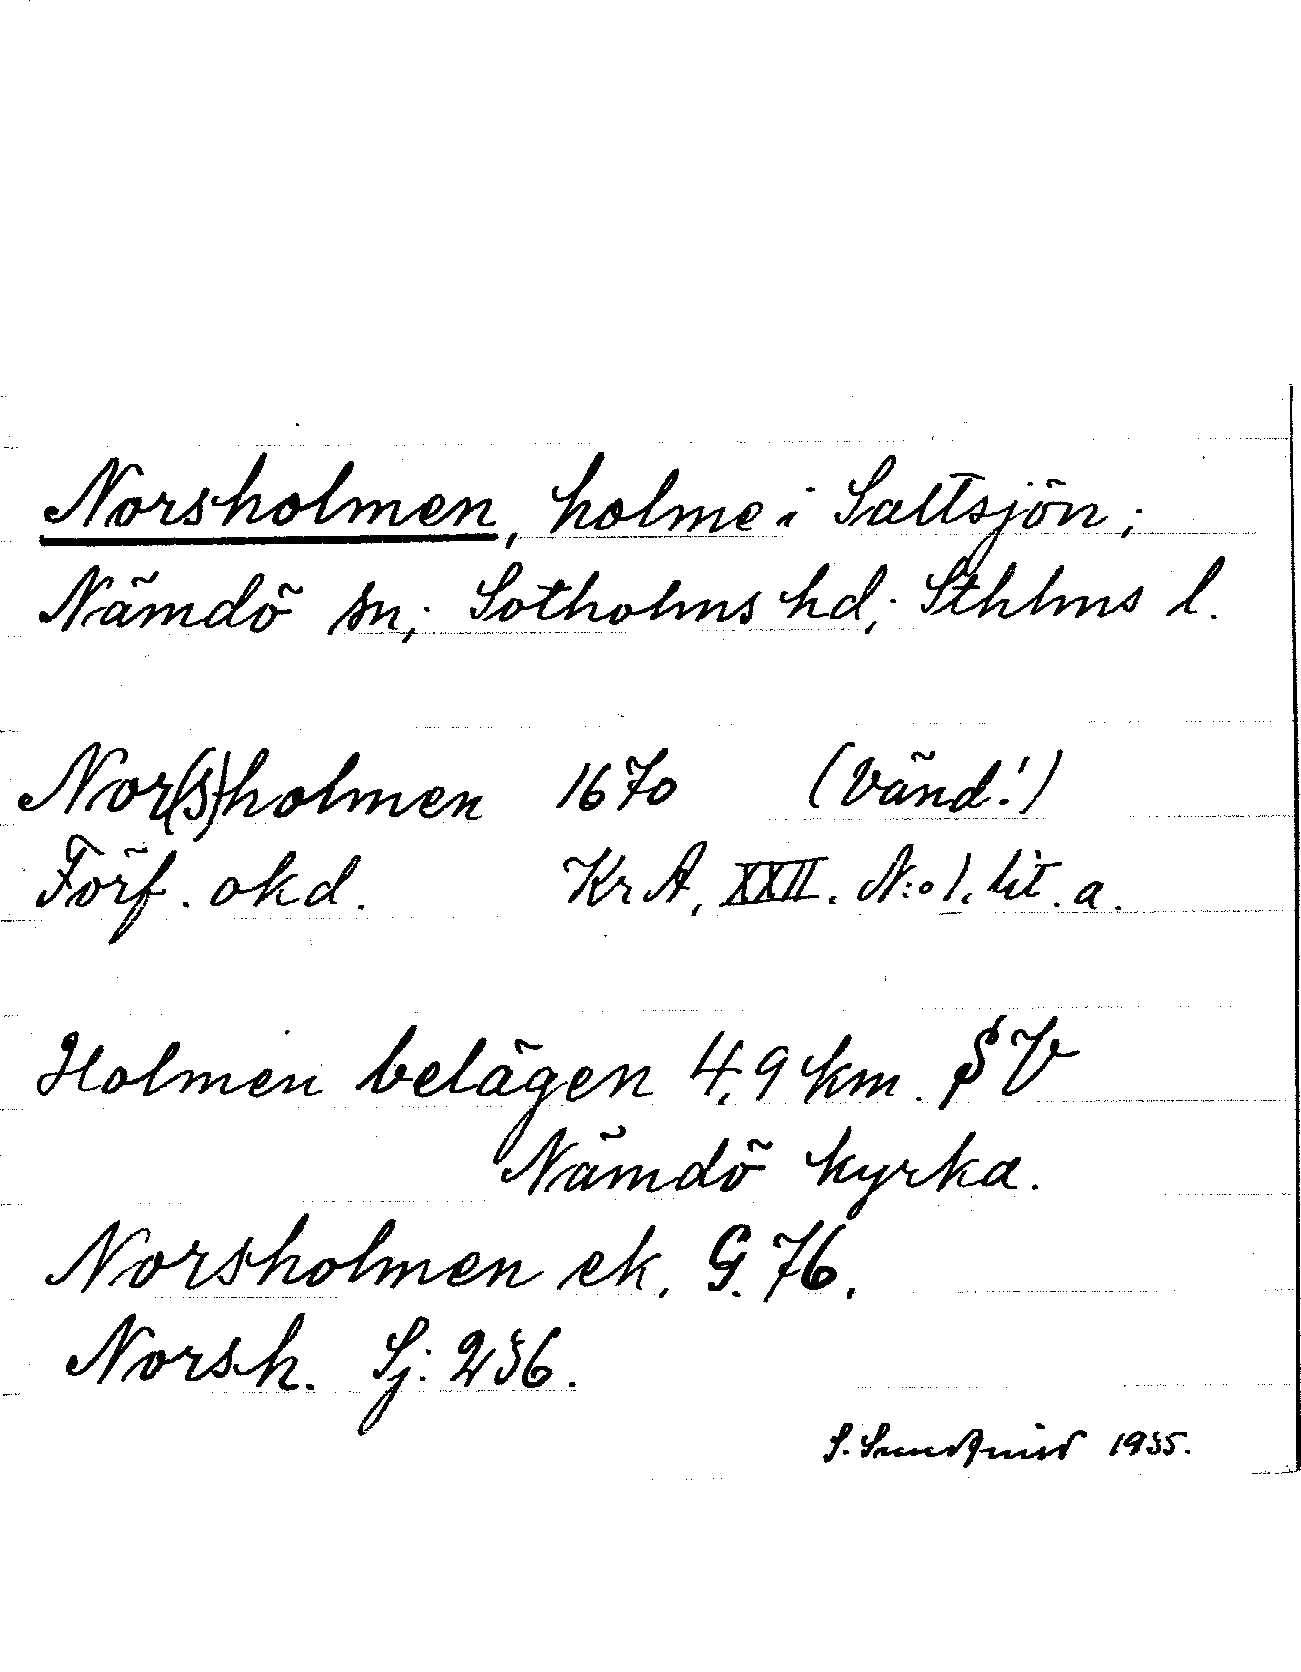 Norsholmen, holme i Saltsjön;
Nämdö sn; Sotholms hd; Sthlms l.
Nor(s)holmen 1670 (Vänd!)
Förf. okd. Kr A, XXII. N:o 1. lit. a.
Holmen belägen 4,9 km. SV
Nämdö kyrka.
Norsholmen ek. G. 76.
Norsh. Sj: 236.
S. Sundquist 1935.